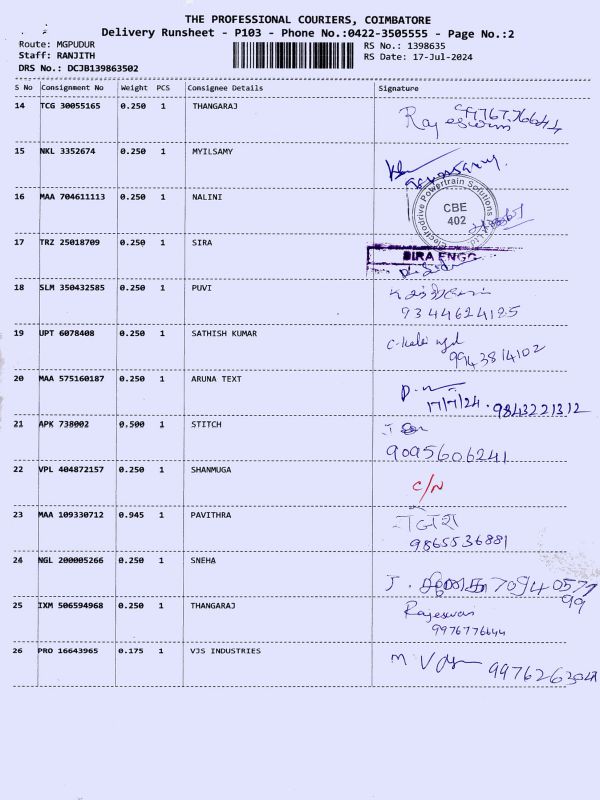 THE PROFESSIONAL COURIERS, COIMBATORE
Delivery Runsheet - P103 - Phone No.:0422-3505555 - Page No.:2
Route: MGPUDUR
RS No.: 1398635
Staff: RANJITH
RS Date: 17-Jul-2024
DRS No.: DCJB139863502
S No Consignment No Weight PCS Consignee Details Signature
14 TCG 30055165 0.250 1 THANGARAJ
Rajeswari
15 NKL 3352674 0.250 1 MYILSAMY
16 MAA 704611113 0.250 1 NALINI
Electrodrive Powertrain Solutions
CBE
402
17 TRZ 25018709 0.250 1 SIRA
SIRA ENGG
18 SLM 350432585 0.250 1 PUVI
9344624125
19 UPT 6078408 0.250 1 SATHISH KUMAR
9943814102
20 MAA 575160187 0.250 1 ARUNA TEXT
17/7/24 . 9843221312
21 APK 738002 0.500 1 STITCH
9095606241
22 VPL 404872157 0.250 1 SHANMUGA
C/N
23 MAA 109330712 0.945 1 PAVITHRA
9865536881
24 NGL 200005266 0.250 1 SNEHA
7094057799
25 IXM 506594968 0.250 1 THANGARAJ
Rajeswari
9976776644
26 PRO 16643965 0.175 1 VJS INDUSTRIES